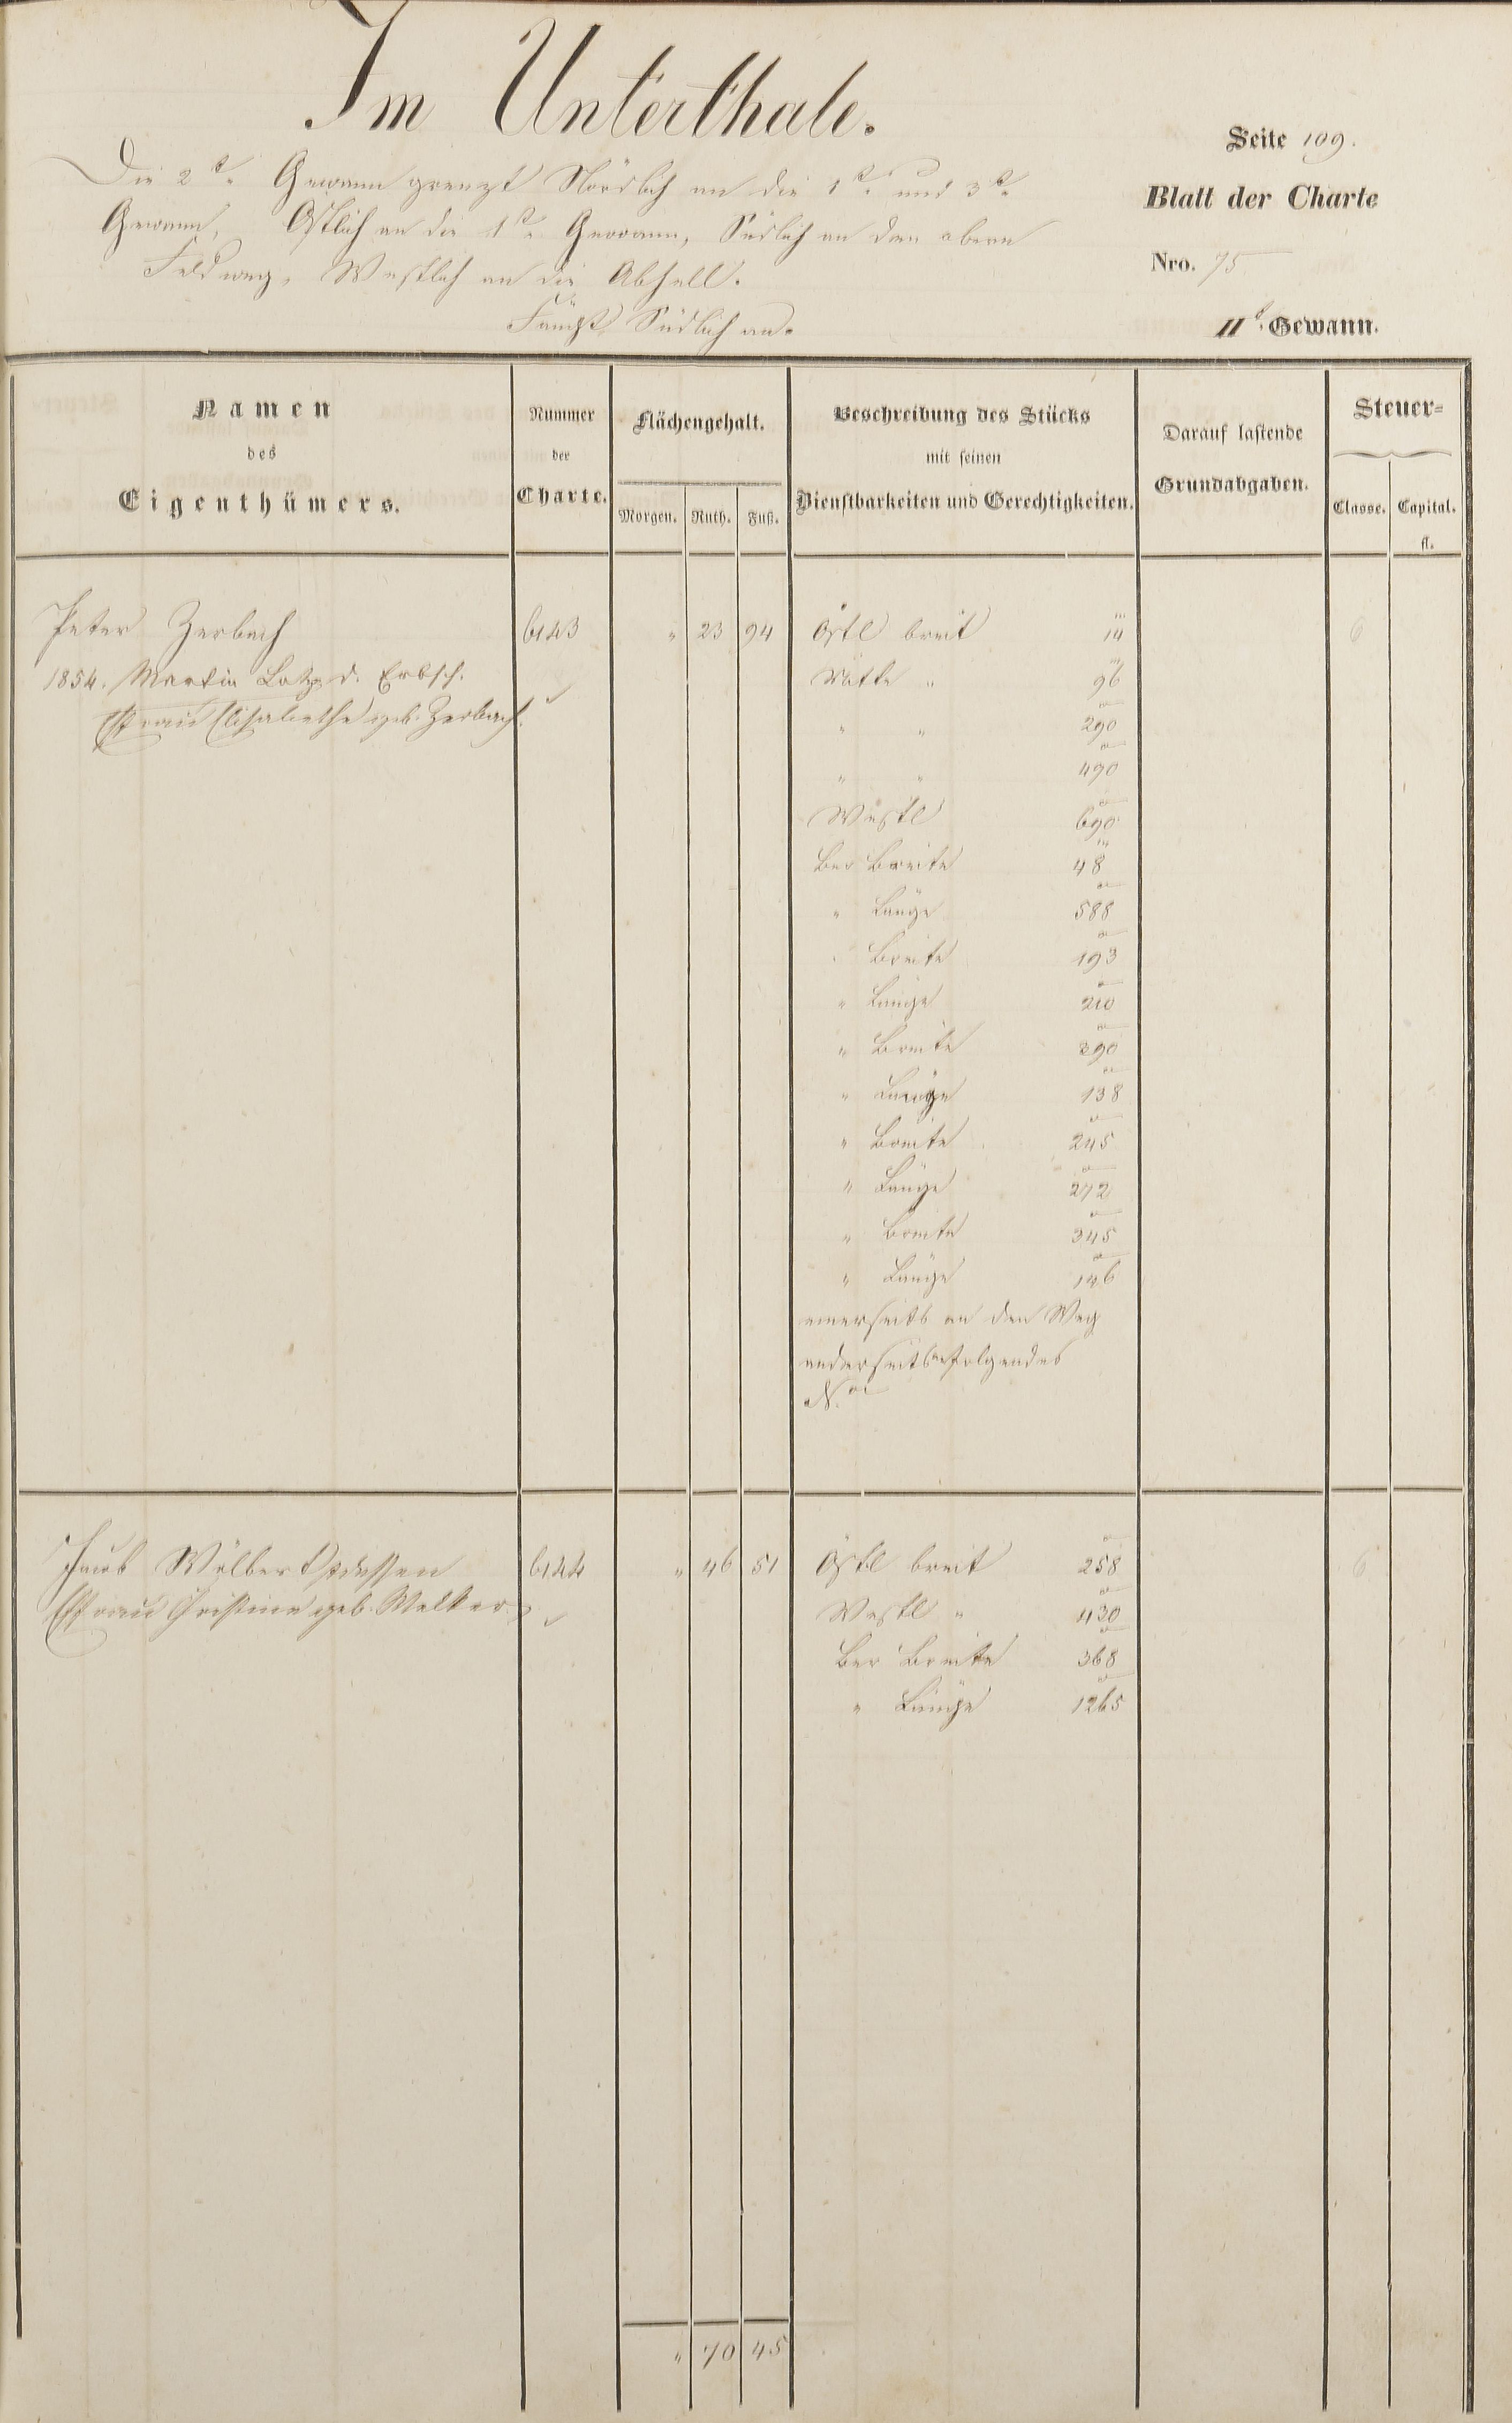 Im Unterthale.
Seite 109.
Die 2te Gewann grenzt Nördlich an die 1te und 3te
Blatt der Charte
Gewann, Östlich an die 1te Gewann, Südlich an den obern
Feldweg, Westlich an die Abhell.
Nro. 75
Fängt Südlich an.
IIt Gewann.
Namen
des
Eigenthümers.
Nummer
der
Charte.
Flächengehalt.
Morgen. Ruth. Fuß.
Beschreibung des Stücks
mit seinen
Dienstbarkeiten und Gerechtigkeiten.
Darauf lastende
Grundabgaben.
Steuer-
Classe. Capital.
fl.
Peter Zerbach 6143 " 23 94 Östl breit 14''' 6
1854. Martin Lotz d. Erbsch. Mitte " 96'''
Ehfrau Elisabetha geb. Zerbach. " " 290
" " 490
Westl 690
Ber Breite 48'''
" Länge 588
" Breite 193
" Länge 210
" Breite 390
" Länge 138
" Breite 245
" Länge 272
" Breite 345
" Länge 146
einerseits an den Weg
anderseits an folgendes
No
Jacob Wölbert dessen 6144 " 46 51 Östl breit 258 6
Ehfrau Christine geb. Welker Westl " 430
Ber Breite 368
" Länge 1265
" 70 45